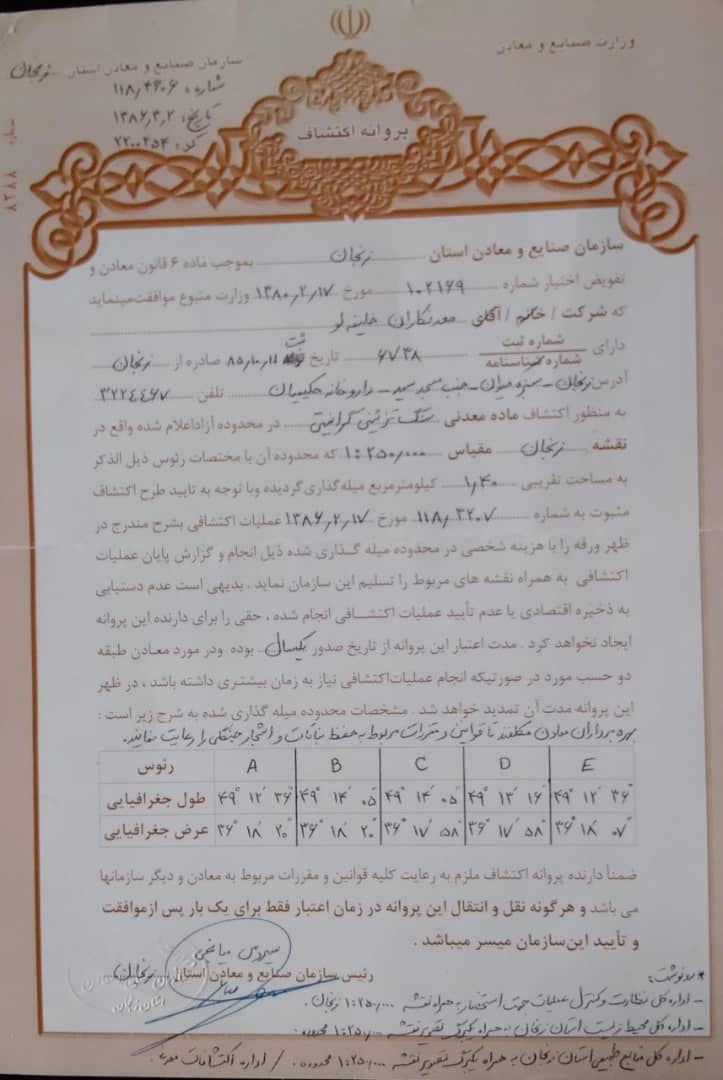 وزارت صنایع و معادن
سازمان صنایع و معادن استان زنجان
شماره: ۱۱۸٫۴۶۰۶
تاریخ: ۱۳۸۶٫۳٫۲
کد: ۲۲۰۰۲۵۴
شماره ۸۲۸۸
پروانه اکتشاف
سازمان صنایع و معادن استان زنجان بموجب ماده ۶ قانون معادن و
تفویض اختیار شماره ۱۰۲۱۶۹ مورخ ۱۳۸۰٫۲٫۱۷ وزارت متبوع موافقت مینماید
که شرکت / خانم / آقای معدنکاران خلیفه لو
دارای شماره ثبت / شماره شناسنامه ۶۷۳۸ تاریخ ثبت ۸۵٫۱۰٫۱۱ صادره از زنجان
آدرس زنجان - سبزه میدان - جنب مسجد سید - داروخانه حکیمیان تلفن ۳۲۲۴۴۶۷
به منظور اکتشاف ماده معدنی سنگ تزئینی گرانیتی در محدوده آزاد اعلام شده واقع در
نقشه زنجان مقیاس ۱:۲۵۰٫۰۰۰ که محدوده آن با مختصات رئوس ذیل الذکر
به مساحت تقریبی ۱٫۴۰ کیلومترمربع میله گذاری گردیده وبا توجه به تایید طرح اکتشاف
مثبوت به شماره ۱۱۸٫۳۲۰۷ مورخ ۱۳۸۶٫۲٫۱۷ عملیات اکتشافی بشرح مندرج در
ظهر ورقه را با هزینه شخصی در محدوده میله گذاری شده ذیل انجام و گزارش پایان عملیات
اکتشافی به همراه نقشه های مربوط را تسلیم این سازمان نماید . بدیهی است عدم دستیابی
به ذخیره اقتصادی یا عدم تأیید عملیات اکتشافی انجام شده ، حقی را برای دارنده این پروانه
ایجاد نخواهد کرد . مدت اعتبار این پروانه از تاریخ صدور یکسال بوده ودر مورد معادن طبقه
دو حسب مورد در صورتیکه انجام عملیات اکتشافی نیاز به زمان بیشتری داشته باشد ، در ظهر
این پروانه مدت آن تمدید خواهد شد . مشخصات محدوده میله گذاری شده به شرح زیر است :
بهره برداران معادن مکلفند تا قوانین و مقررات مربوط به حفظ نباتات و اشجار جنگلی را رعایت نمایند.
رئوس A B C D E
طول جغرافیایی ۴۹° ۱۲' ۳۶" ۴۹° ۱۴' ۰۵" ۴۹° ۱۴' ۰۵" ۴۹° ۱۳' ۱۶" ۴۹° ۱۲' ۳۶"
عرض جغرافیایی ۳۶° ۱۸' ۲۰" ۳۶° ۱۸' ۲۰" ۳۶° ۱۷' ۵۸" ۳۶° ۱۷' ۵۸" ۳۶° ۱۸' ۰۷"
ضمناً دارنده پروانه اکتشاف ملزم به رعایت کلیه قوانین و مقررات مربوط به معادن و دیگر سازمانها
می باشد و هر گونه نقل و انتقال این پروانه در زمان اعتبار فقط برای یک بار پس از موافقت
و تأیید این سازمان میسر میباشد .
رئیس سازمان صنایع و معادن استان زنجان
رونوشت:
- اداره کل نظارت و کنترل عملیات جهت استحضار به همراه نقشه ۱:۲۵۰٫۰۰۰ زنجان.
- اداره کل محیط زیست استان زنجان به همراه یک برگ تصویر نقشه ۱:۲۵۰٫۰۰۰ محدوده.
- اداره کل منابع طبیعی استان زنجان به همراه یک برگ تصویر نقشه ۱:۲۵۰٫۰۰۰ محدوده. / اداره اکتشافات